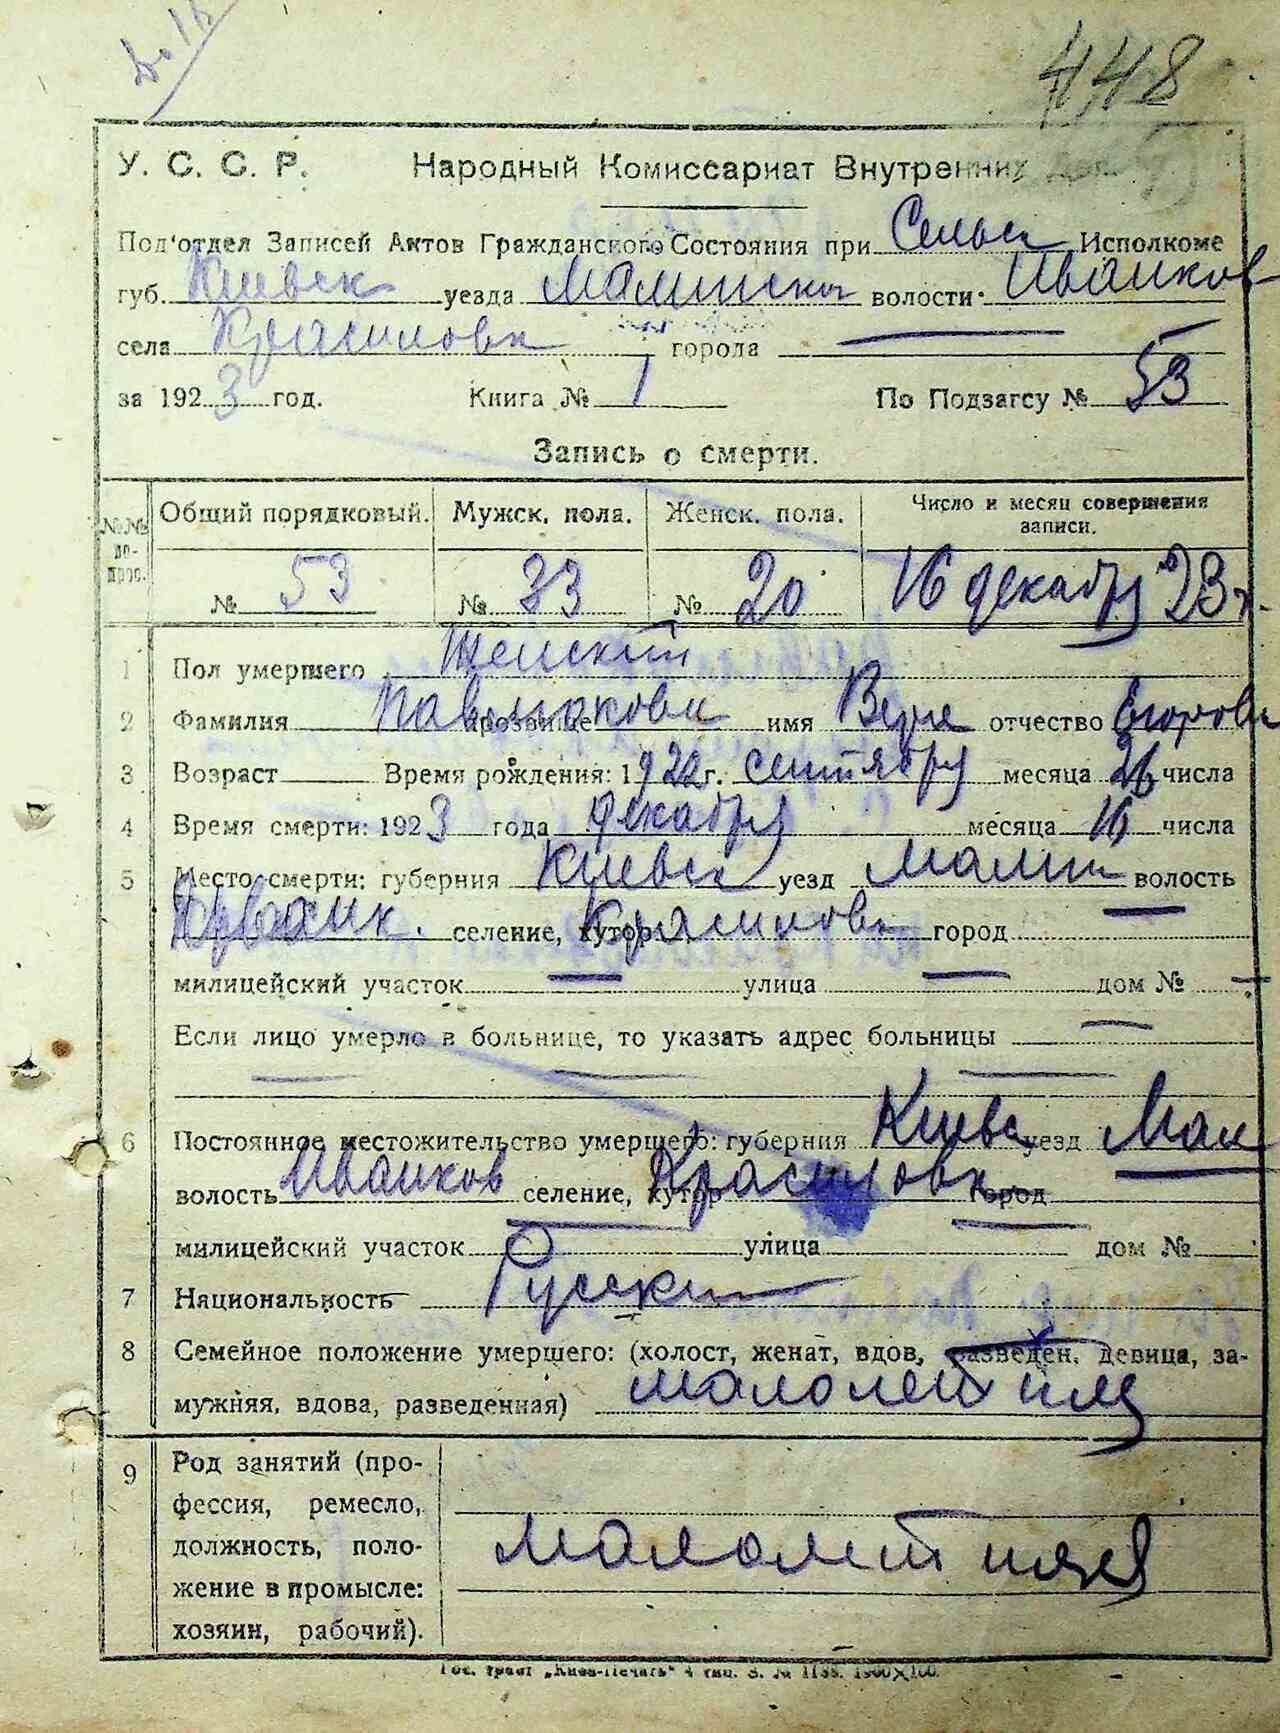 448
У. С. С. Р. Народный Комиссариат Внутренних
Под'отдел Записей Актов Гражданского Состояния при Сельск Исполкоме
губ. Киевск уезда Малинска волости Иванков
села Красиловка города
за 1923 год. Книга № 1 По Подзагсу № 53
Запись о смерти.
№№ по- прос. Общий порядковый. Мужск. пола. Женск. пола. Число и месяц совершения записи.
№ 53 № 33 № 20 16 декабр 23 г.
1 Пол умершего Женский
2 Фамилия прозвище имя Вера отчество Егорови
3 Возраст Время рождения: 1922 г. сентябру месяца 26 числа
4 Время смерти: 1923 года декабру месяца 16 числа
5 Место смерти: губерния Киевск уезд Малин волость
Иванк. селение, хутор Красиловк город
милицейский участок улица дом №
Если лицо умерло в больнице, то указать адрес больницы
6 Постоянное местожительство умершего: губерния Киевс уезд Мал
волость Иванков селение, хутор Красиловк город
милицейский участок улица дом №
7 Национальность Русский
8 Семейное положение умершего: (холост, женат, вдов, разведен, девица, за-
мужняя, вдова, разведенная) малолетняя
9 Род занятий (про-
фессия, ремесло,
должность, поло- малолетняя
жение в промысле:
хозяин, рабочий).
Гос. трест „Киев-Печать" 4 тип. З. № 1135. 1900×100.